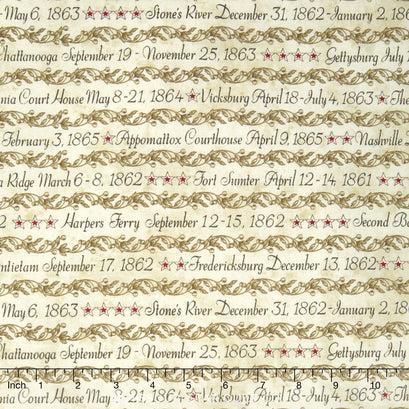 - May 6, 1863 Stone's River December 31, 1862-January 2, 186
Chattanooga September 19 - November 25, 1863 Gettysburg July
nia Court House May 8-21, 1864 Vicksburg April 18-July 4, 1863 Th
February 3, 1865 Appomattox Courthouse April 9, 1865 Nashville
a Ridge March 6-8, 1862 Fort Sumter April 12-14, 1861
2 Harpers Ferry September 12-15, 1862 Second Ba
ntietam September 17, 1862 Fredericksburg December 13, 1862
May 6, 1863 Stone's River December 31, 1862-January 2, 18
Chattanooga September 19 - November 25, 1863 Gettysburg July
Inch 1 2 3 4 5 6 7 8 9 10
nia Court House May 8-21, 1864 Vicksburg April 18-July 4, 1863 The